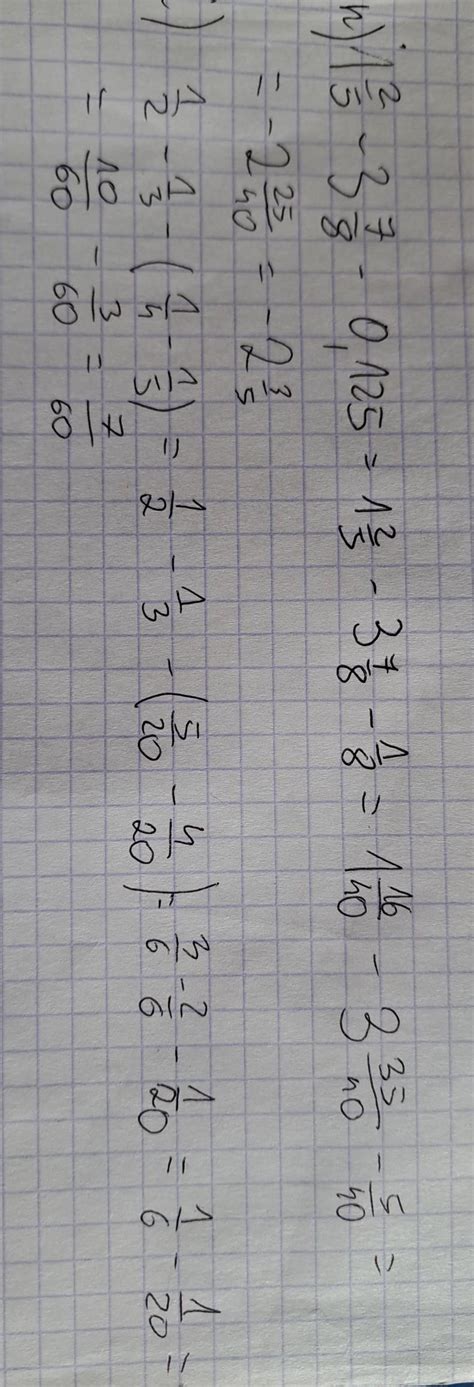 h) 1 2/5 - 3 7/8 - 0,125 = 1 2/5 - 3 7/8 - 1/8 = 1 16/40 - 3 35/40 - 5/40 =
= - 2 25/40 = - 2 3/5
) 1/2 - 1/3 - (1/4 - 1/5) = 1/2 - 1/3 - (5/20 - 4/20) = 3/6 - 2/6 - 1/20 = 1/6 - 1/20 =
= 10/60 - 3/60 = 7/60